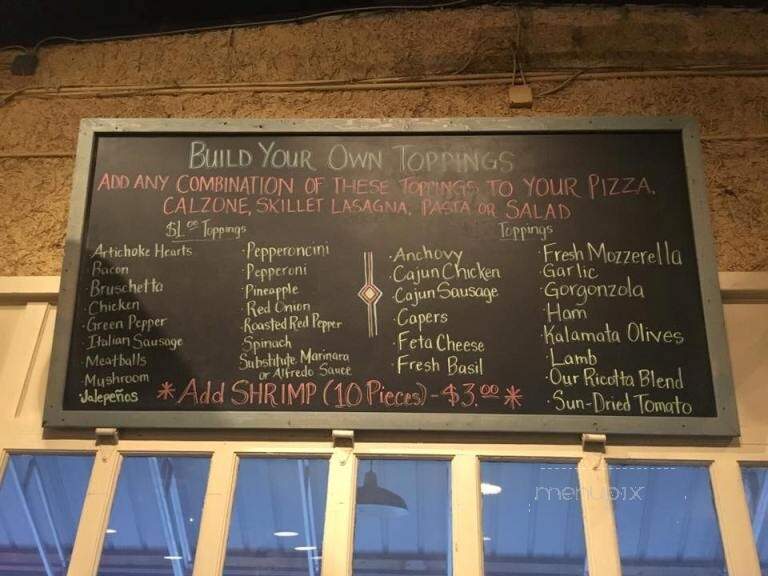 BUILD YOUR OWN TOPPINGS
ADD ANY COMBINATION OF THESE TOPPINGS TO YOUR PIZZA,
CALZONE, SKILLET LASAGNA, PASTA OR SALAD
$1.00 Toppings
Artichoke Hearts
Bacon
Bruschetta
Chicken
·Green Pepper
·Italian Sausage
·Meatballs
·Mushroom
Jalepeños
·Pepperoncini
·Pepperoni
·Pineapple
·Red Onion
·Roasted Red Pepper
·Spinach
·Substitute Marinara
or Alfredo Sauce
Toppings
·Anchovy
·Cajun Chicken
·Cajun Sausage
·Capers
·Feta Cheese
·Fresh Basil
·Fresh Mozzerella
·Garlic
·Gorgonzola
·Ham
·Kalamata Olives
·Lamb
·Our Ricotta Blend
·Sun-Dried Tomato
*Add SHRIMP (10 Pieces) - $3.00*
menupix